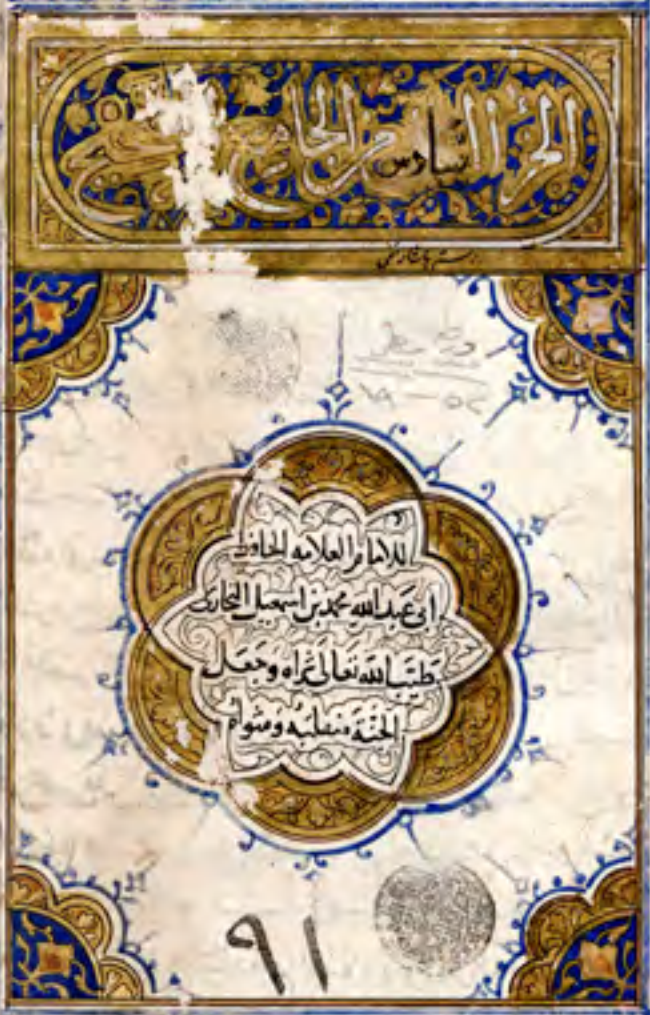 الجزء السادس من الجامع الصحيح
للامام العلامه الحافظ
ابى عبد الله محمد بن اسمعيل البخارى
طيب الله تعالى ثراه وجعل
الجنة منقلبه ومثواه
٩١